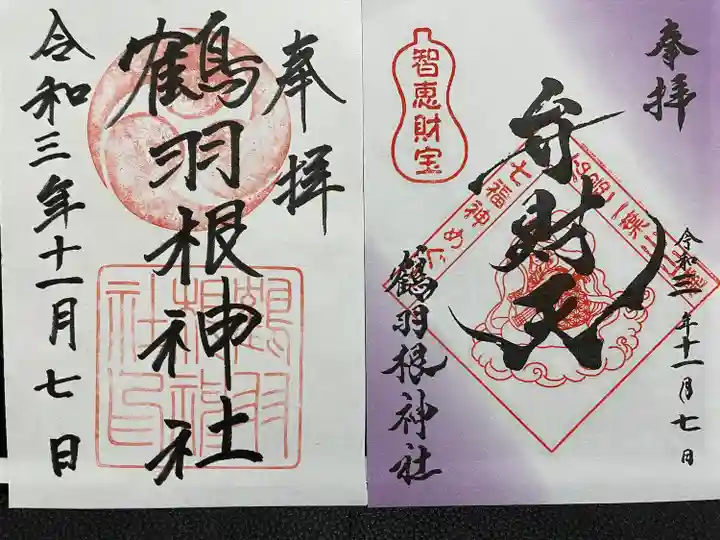 奉拝
鶴羽根神社
令和三年十一月七日
鶴羽根神社印
奉拝
令和三年十一月七日
弁財天
智恵財宝
七福神めぐ
鶴羽根神社